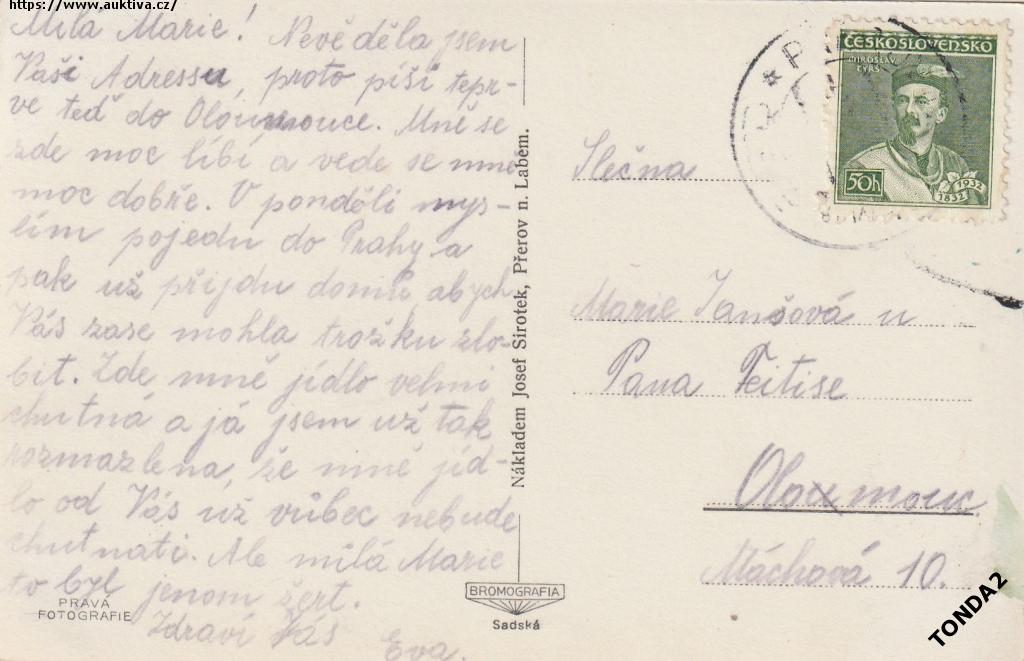 https://www.auktiva.cz/
Milá Marie! Nevěděla jsem
Vaši Adressu, proto píši tepr-
ve teď do Oloumouce. Mně se
zde moc líbí a vede se mně
moc dobře. V pondělí mys-
lím pojedu do Prahy a
pak už přijdu domů abych
Vás zase mohla trožku zlo-
bit. Zde mně jídlo velmi
chutná a já jsem už tak
rozmazlena, že mně jíd-
lo od Vás už vůbec nebude
chutnati. Ale milá Marie
to byl jenom žert.
Zdraví Vás
Eva.
PRAVÁ
FOTOGRAFIE
BROMOGRAFIA
Sadská
Nákladem Josef Sirotek, Přerov n. Labem.
ČESKOSLOVENSKO
MIROSLAV
TYRŠ
50h
1832
1932
Slečna
Marie Janšová u
Pana Feitise
Oloumouc
Máchová 10.
TONDA2